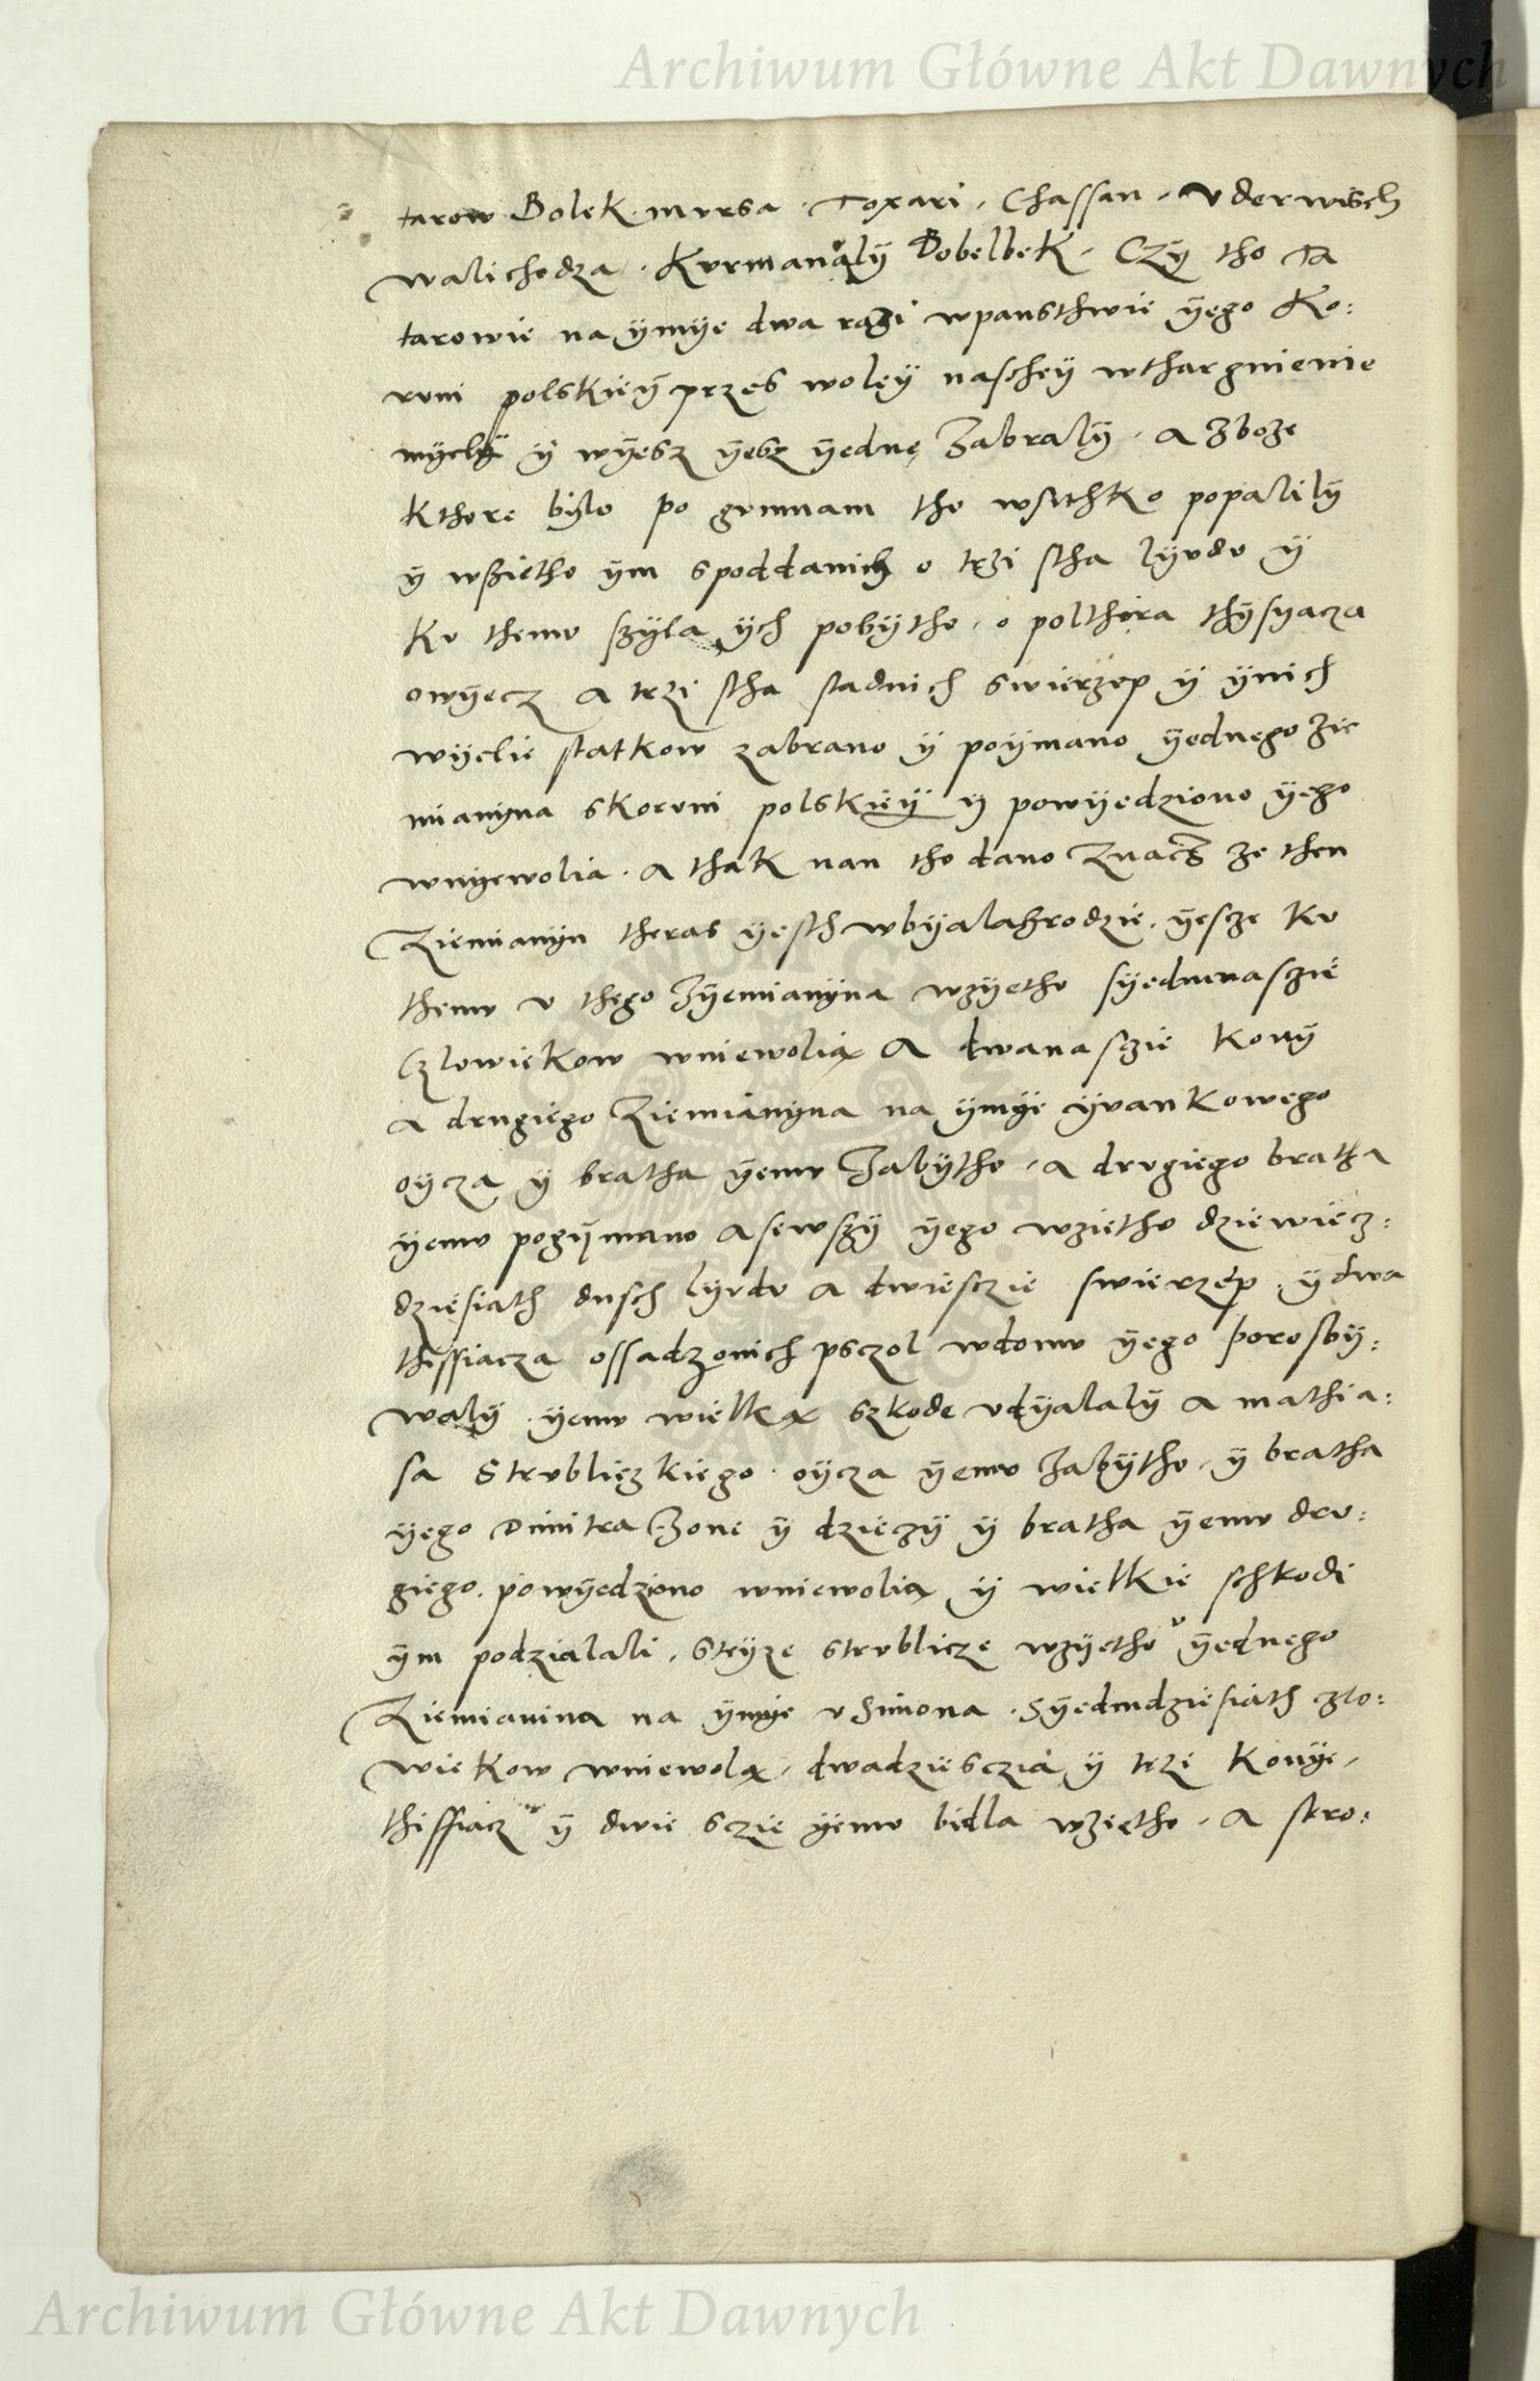 Archiwum Główne Akt Dawnych
tarow Dolek mvrsa Toxari, Chassan, v derwisch
walichodza. Kvrmanaly Dobelbek, Czÿ tho ta
tarowie na ÿmÿe dwa razi wpansthwie ÿego Ko:
rvni polskieÿ przes woleÿ nascheÿ wthargnienie
myelÿ ÿ wÿesz ÿesz ÿednę Zabralÿ, a zboze
kthore bÿlo po gvmnam tho wsithko popalilÿ
ÿ wzietho ÿm spoddanich o trzi stha lÿvdv ÿ
kv themv szÿla ÿch pobÿtho, o polthora thÿsyacza
owÿecz a trzi stha stadnich swierzep ÿ ÿnich
wÿelie statkow zabrano ÿ poÿmano ÿednego zie
mianyna skorvni polskieÿ ÿ powÿedziono ÿego
wnyewolia. a thak nan tho dano Znacz ze then
Ziemianÿn theras ÿesth wbÿalahrodzie, ÿescze kv
themv v thego Zÿemianÿna wzÿetho sÿedmnaszie
Czlowiekow wniewolią a dwanasczie konÿ
a drugiego Ziemianÿna na ÿmÿe ÿvankowego
oÿcza ÿ bratha ÿemv Zabÿtho, a drvgiego bratha
ÿemv pogÿmano a sewszÿ ÿego wzietho dziewiecz:
dziesiath dusch lÿvdv a dwiesczie swierzep, ÿ dwa
thissiacza ossadzonich psczol wdomv ÿego porosbÿ:
walÿ ÿemv wielką szkode vdÿalalÿ a mathia:
sa Strvbliczkiego oÿcza ÿemv Zabÿtho, ÿ bratha
ÿego Dimitra Zone ÿ dzieczÿ ÿ bratha ÿemv drv:
giego. powÿedziono wniewolią ÿ wielkie schkodi
ÿm podzialali, strÿze strvblicze wzÿetho v ÿednego
Ziemianina na ÿmÿe v Simona. Sÿedmdziesiath czlo:
wiekow wniewolą, dwadziesczia ÿ trzi konÿe,
thissiacz ÿ dwie sczie ÿemv bidla wzietho, a stro:
Archiwum Główne Akt Dawnych